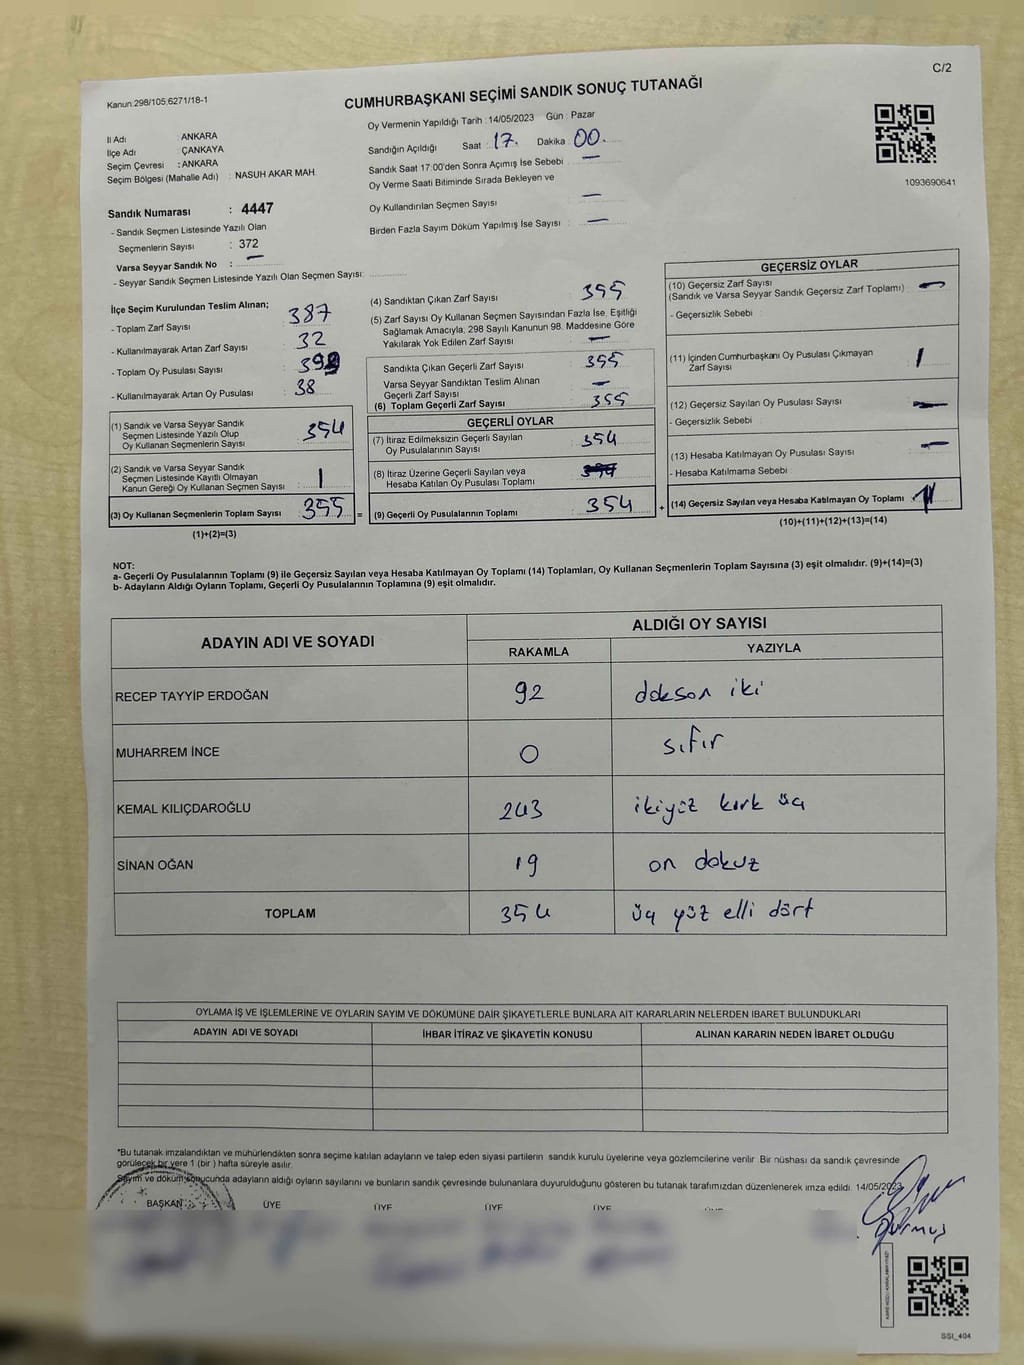 C/2
Kanun:298/105;6271/18-1
CUMHURBAŞKANI SEÇİMİ SANDIK SONUÇ TUTANAĞI
İl Adı : ANKARA
İlçe Adı : ÇANKAYA
Seçim Çevresi : ANKARA
Seçim Bölgesi (Mahalle Adı) : NASUH AKAR MAH.
Oy Vermenin Yapıldığı Tarih : 14/05/2023 Gün : Pazar
Sandığın Açıldığı Saat : 17. Dakika : 00.
Sandık Saat 17:00'den Sonra Açımış İse Sebebi : —
Oy Verme Saati Bitiminde Sırada Bekleyen ve
Oy Kullandırılan Seçmen Sayısı —
Birden Fazla Sayım Döküm Yapılmış İse Sayısı : —
1093690641
Sandık Numarası : 4447
- Sandık Seçmen Listesinde Yazılı Olan
Seçmenlerin Sayısı : 372
Varsa Seyyar Sandık No : —
- Seyyar Sandık Seçmen Listesinde Yazılı Olan Seçmen Sayısı:
İlçe Seçim Kurulundan Teslim Alınan;
- Toplam Zarf Sayısı : 387
- Kullanılmayarak Artan Zarf Sayısı : 32
- Toplam Oy Pusulası Sayısı :
- Kullanılmayarak Artan Oy Pusulası : 38
(1) Sandık ve Varsa Seyyar Sandık
Seçmen Listesinde Yazılı Olup
Oy Kullanan Seçmenlerin Sayısı : 354
(2) Sandık ve Varsa Seyyar Sandık
Seçmen Listesinde Kayıtlı Olmayan
Kanun Gereği Oy Kullanan Seçmen Sayısı : 1
(3) Oy Kullanan Seçmenlerin Toplam Sayısı : 355 =
(1)+(2)=(3)
(4) Sandıktan Çıkan Zarf Sayısı : 355
(5) Zarf Sayısı Oy Kullanan Seçmen Sayısından Fazla İse, Eşitliği
Sağlamak Amacıyla; 298 Sayılı Kanunun 98. Maddesine Göre
Yakılarak Yok Edilen Zarf Sayısı : —
Sandıkta Çıkan Geçerli Zarf Sayısı : 355
Varsa Seyyar Sandıktan Teslim Alınan
Geçerli Zarf Sayısı : —
(6) Toplam Geçerli Zarf Sayısı : 355
GEÇERLİ OYLAR
(7) İtiraz Edilmeksizin Geçerli Sayılan
Oy Pusulalarının Sayısı : 354
(8) İtiraz Üzerine Geçerli Sayılan veya
Hesaba Katılan Oy Pusulası Toplamı :
(9) Geçerli Oy Pusulalarının Toplamı : 354 +
GEÇERSİZ OYLAR
(10) Geçersiz Zarf Sayısı
(Sandık ve Varsa Seyyar Sandık Geçersiz Zarf Toplamı) : —
- Geçersizlik Sebebi :
(11) İçinden Cumhurbaşkanı Oy Pusulası Çıkmayan
Zarf Sayısı : 1
(12) Geçersiz Sayılan Oy Pusulası Sayısı : —
- Geçersizlik Sebebi :
(13) Hesaba Katılmayan Oy Pusulası Sayısı : —
- Hesaba Katılmama Sebebi :
(14) Geçersiz Sayılan veya Hesaba Katılmayan Oy Toplamı :
(10)+(11)+(12)+(13)=(14)
NOT:
a- Geçerli Oy Pusulalarının Toplamı (9) ile Geçersiz Sayılan veya Hesaba Katılmayan Oy Toplamı (14) Toplamları, Oy Kullanan Seçmenlerin Toplam Sayısına (3) eşit olmalıdır. (9)+(14)=(3)
b- Adayların Aldığı Oyların Toplamı, Geçerli Oy Pusulalarının Toplamına (9) eşit olmalıdır.
ADAYIN ADI VE SOYADI
ALDIĞI OY SAYISI
RAKAMLA YAZIYLA
RECEP TAYYİP ERDOĞAN 92 doksan iki
MUHARREM İNCE 0 sıfır
KEMAL KILIÇDAROĞLU 243 ikiyüz kırk üç
SİNAN OĞAN 19 on dokuz
TOPLAM 354 üç yüz elli dört
OYLAMA İŞ VE İŞLEMLERİNE VE OYLARIN SAYIM VE DÖKÜMÜNE DAİR ŞİKAYETLERLE BUNLARA AİT KARARLARIN NELERDEN İBARET BULUNDUKLARI
ADAYIN ADI VE SOYADI İHBAR İTİRAZ VE ŞİKAYETİN KONUSU ALINAN KARARIN NEDEN İBARET OLDUĞU
*Bu tutanak imzalandıktan ve mühürlendikten sonra seçime katılan adayların ve talep eden siyasi partilerin sandık kurulu üyelerine veya gözlemcilerine verilir. Bir nüshası da sandık çevresinde
görülecek bir yere 1 (bir) hafta süreyle asılır.
Sayım ve döküm sonucunda adayların aldığı oyların sayılarını ve bunların sandık çevresinde bulunanlara duyurulduğunu gösteren bu tutanak tarafımızdan düzenlenerek imza edildi. 14/05/2023
BAŞKAN ÜYE ÜYE ÜYE ÜYE
Durmuş
SSI_404